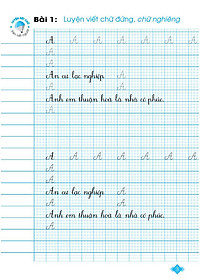 Bài 1: Luyện viết chữ đứng, chữ nghiêng
A A A A A A A
A
A
An cư lạc nghiệp. A
A A
Anh em thuận hoà là nhà có phúc.
A
A
A A A A A A A
A
A
An cư lạc nghiệp. A
A A
Anh em thuận hoà là nhà có phúc.
A
A